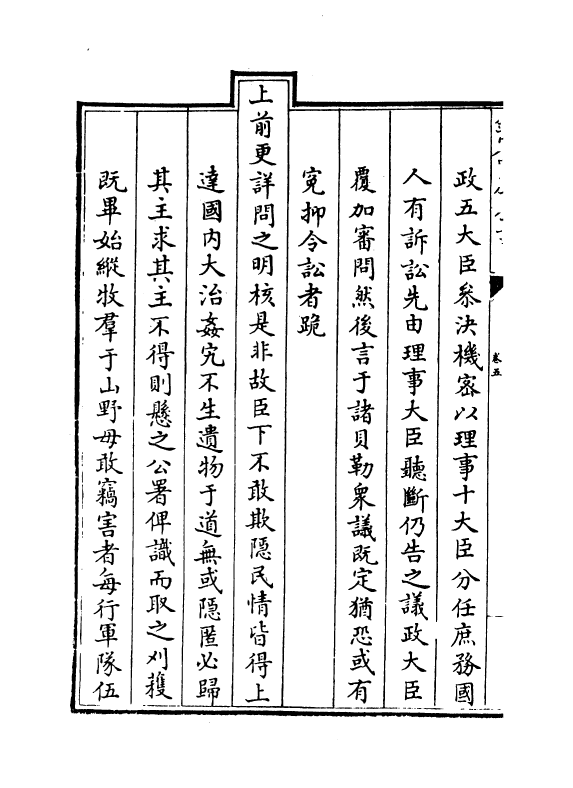 卷五
政五大臣叅決機宻以理事十大臣分任庶務國
人有訴訟先由理事大臣聽斷仍告之議政大臣
覆加審問然後言于諸貝勒衆議既定猶恐或有
寃抑令訟者跪
上前更詳問之明核是非故臣下不敢欺隱民情皆得上
達國内大治姦宄不生遺物于道無或隱匿必歸
其主求其主不得則懸之公署俾識而取之刈穫
既畢始縱牧羣于山野毋敢竊害者每行軍隊伍